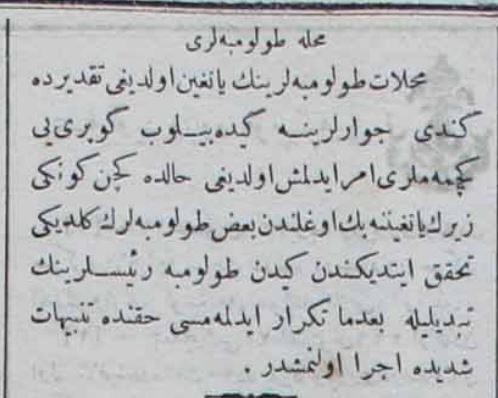 محله طولومبه‌لری
محلات طولومبه‌لرینك یانغین اولدیغی تقدیرده
كندی جوارلرینــه گیده‌بیــلوب گوپری‌یی
كچمه‌ملری امر ایدلمش اولدیغی حالده كچن كونكی
زیرك یانغیننه بك اوغلندن بعض طولومبه‌لرك كلدیكی
تحقق ایتدیكندن كیدن طولومبه رئیســلرینك
تبدیلیله بعدما تكرار ایدلمه‌مسی حقنده تنبیهات
شدیده اجرا اولنمشدر .